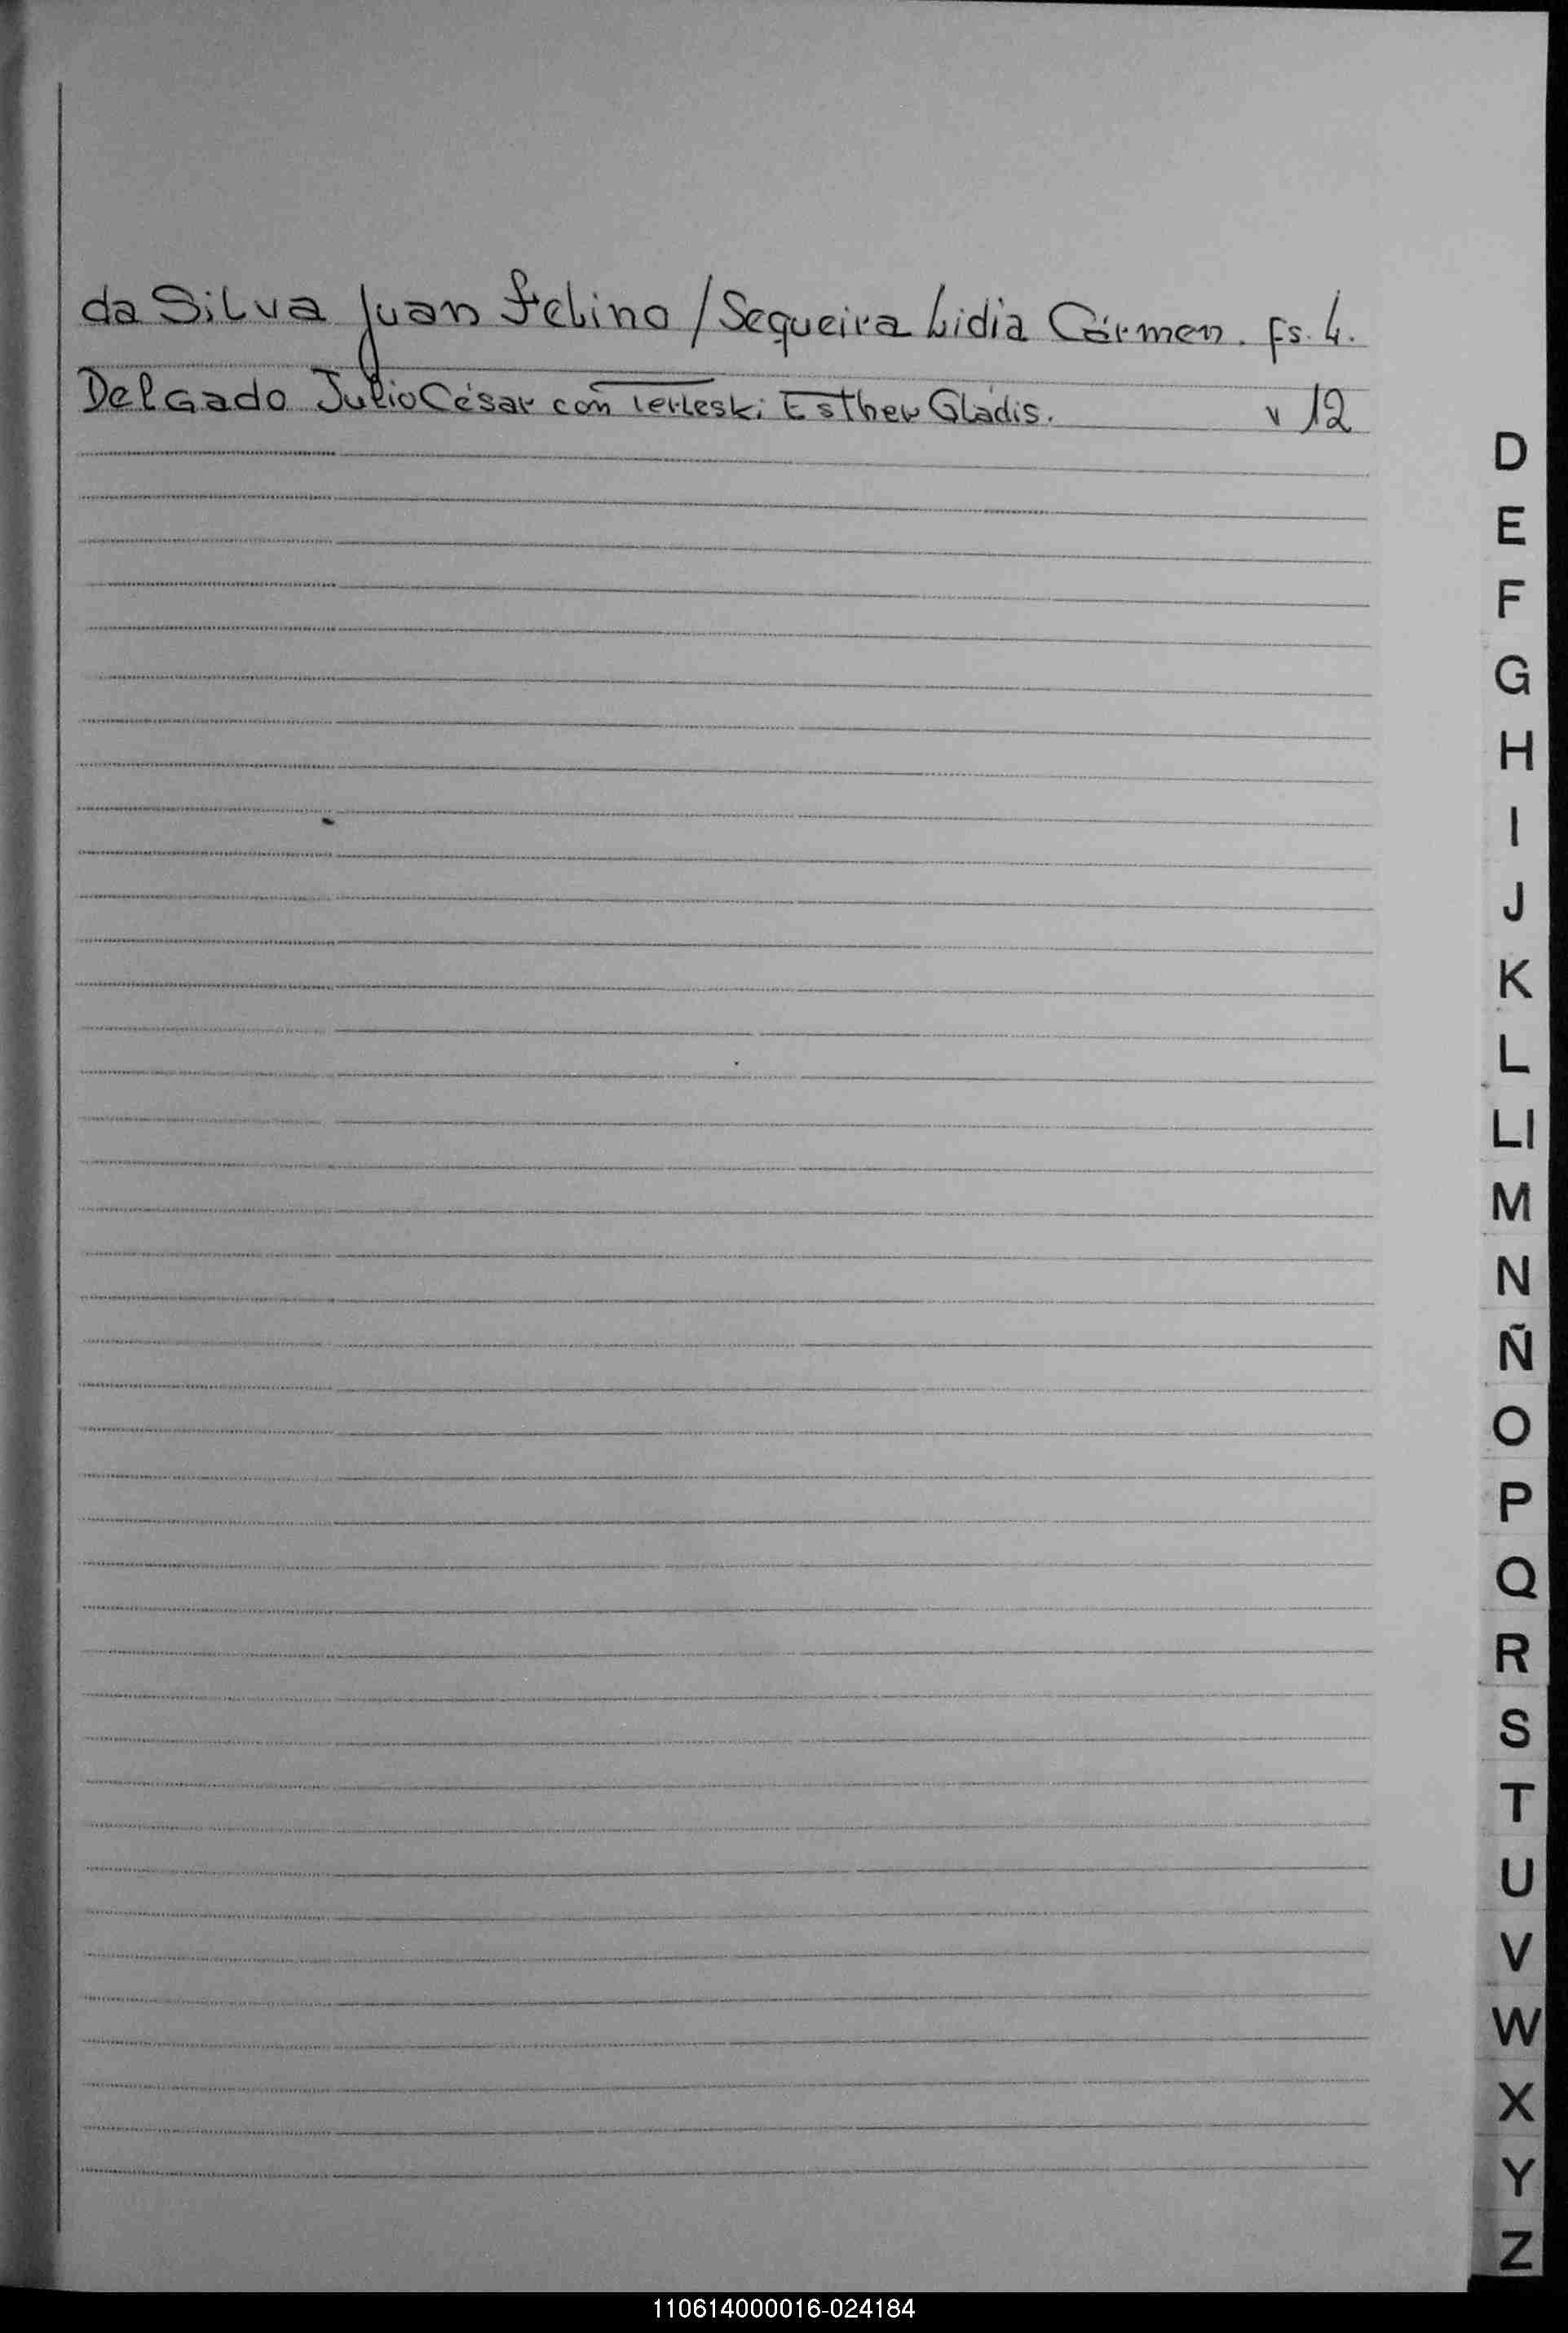 da Silva Juan Felino / Sequeira Lidia Cármen. fs. 4.
Delgado Julio César con Terleski Esther Gladis. " 12
D
E
F
G
H
I
J
K
L
Ll
M
N
Ñ
O
P
Q
R
S
T
U
V
W
X
Y
Z
110614000016-024184